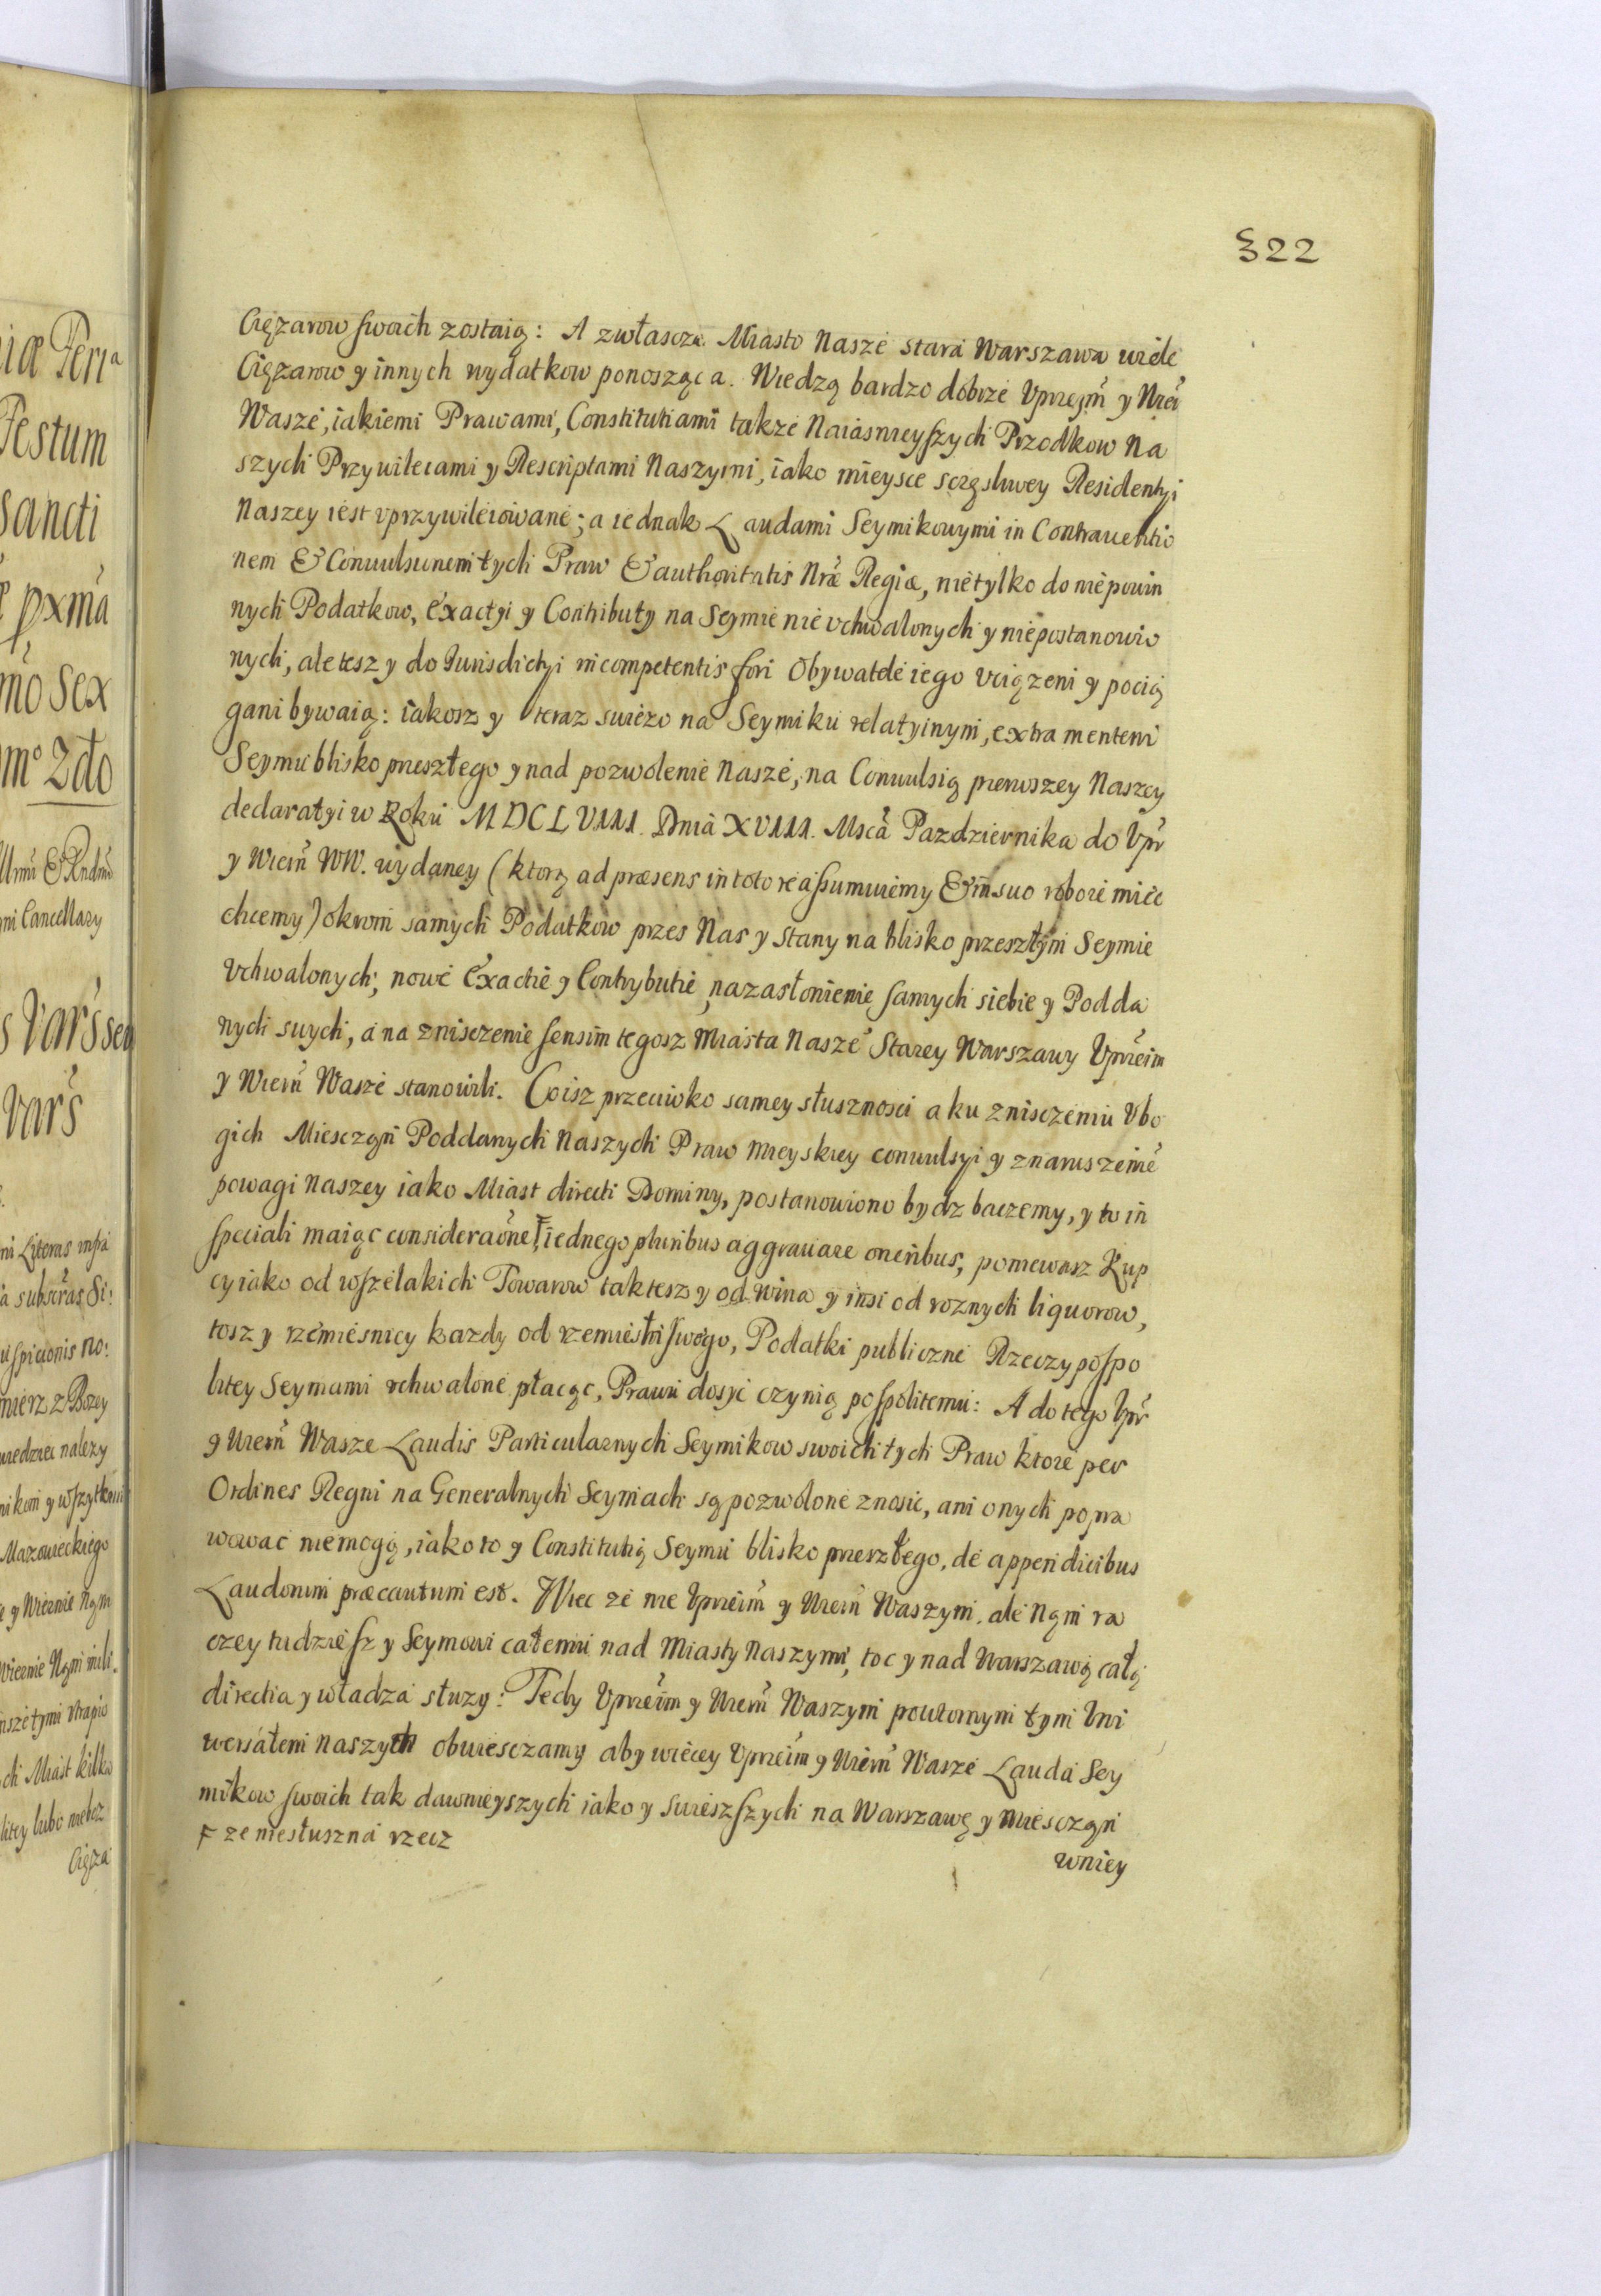 322
Ciężarow swoich zostaią: A zwłascza Miasto Nasze stara Warszawa wiele
Ciężarow y innych wydatkow ponosząca. Wiedzą bardzo dobrze Vprzejm̃ y Wier̃
Wasze, iakiemi Prawami, Constitutiami także Naiasnieyszych Przodkow Na
szych Przywileiami y Rescriptami Naszymi, iako mieysce sczęsliwey Residentyi
Naszey iest vprzywileiowane; a iednak Laudami Seymikowymi in Contrauentio
nem & Conuulsionem tych Praw & authoritatis Nræ Regiæ, nie tylko do niepowin
nych Podatkow, Exactyi y Contributy na Seymie nie vchwalonych y niepostanowio
nych, ale tesz y do Iurisdictyi incompetentis fori Obywatele iego vciążeni y pocią
gani bywaią: iakosz y teraz swieżo na Seymiku relatyinym, extra mentem
Seymu blisko przeszłego y nad pozwolenie Nasze, na Conuulsią pierwszey Naszey
declaratyi w Roku MDCLVIII. Dnia XVIII. Msca Pazdziernika do Vpr̃
y Wierm̃ WW. wydaney (ktorą ad præsens in toto reassumuiemy & in suo robore miec
chcemy) okrom samych Podatkow przes Nas y Stany na blisko przeszłym Seymie
Vchwalonych; nowe Exactie y Contrybutie, na zasłonienie samych siebie y Podda
nych swych, a na zniszczenie sensim tegosz Miasta Nasze Starey Warszawy Vprzeim
y Wierm̃ Wasze stanowili. Co isz przeciwko samey słusznosci a ku znisczeniu Vbo
gich Miesczan Poddanych Naszych Praw Mieyskiey conuulsyi y znaruszenie
powagi Naszey iako Miast directi Dominy, postanowiono bydz baczemy, y to in
speciali maiąc consideraõne F iednego pluribus aggrauare oneribus, poniewasz Kup
cy iako od wszelakich Towarow tak tesz y od wina y insi od roznych liquorow,
tosz y rzemiesnicy kazdy od rzemiesłni swego, Podatki publiczne Rzeczypospo
litey Seymami vchwalone płacąc, Prawu dosyć czynią pospolitemu: A do tego Vpr̃
y Wierm̃ Wasze Laudis Particularnych Seymikow swoich tych Praw ktore per
Ordines Regni na Generalnych Seymach są pozwolone znosic, ani onych popra
wowac niemogą, iako to y Constitutią Seymu blisko przeszłego, de appendicibus
Laudorum præcautum est. Wiec ze nie Vprzeim̃ y Wierm̃ Waszym, ale Nąm ra
czey tudziesz y Seymowi całemu nad Miasty Naszymi, toc y nad Warszawą całą
directia y władza służy: Tedy Vprzeim y Wierm̃ Waszym powtornym tym Vni
wersałem naszym obwiesczamy aby wiecey Vprzeim y Wierm̃ Wasze Lauda Sey
mikow swoich tak dawnieyszych iako y swieszszych na Warszawę y Miesczan
F ze niesłuszna rzecz
wniey